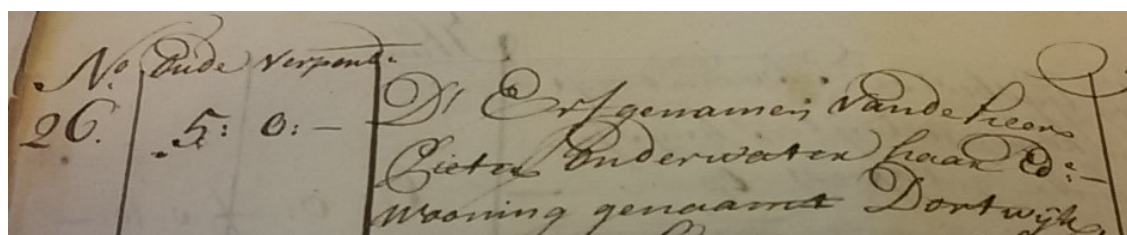 No. Oude Verpond:
26. 5: 0:—
D' Erfgenamen vande heer
Pieter Onderwater haar Ed:—
Wooning genaamt Dortwijk